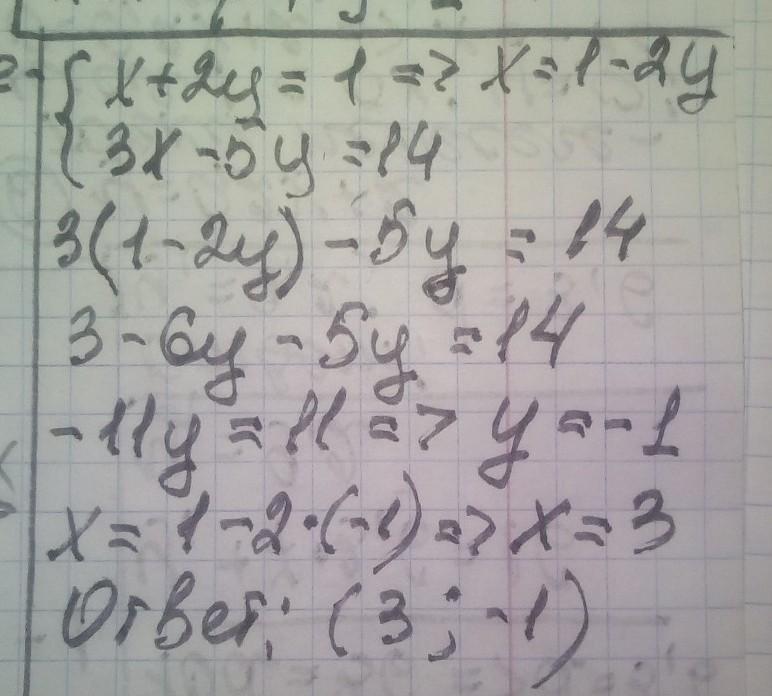 x+2y=1 => x=1-2y
3x-5y=14
3(1-2y)-5y=14
3-6y-5y=14
-11y=11 => y=-1
x=1-2·(-1)=> x=3
Ответ: (3;-1)